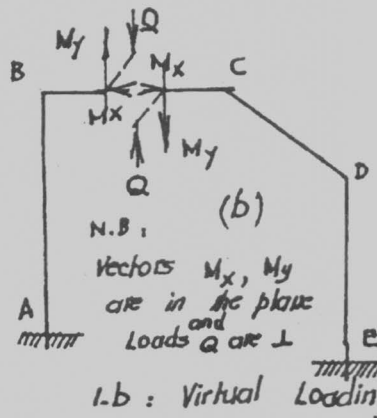 Q
My
B
Mx
C
Mx
My
Q
D
(b)
N.B:
Vectors Mx, My
A
are in the plane
and
Loads Q are ⊥
E
1-b : Virtual Loadin